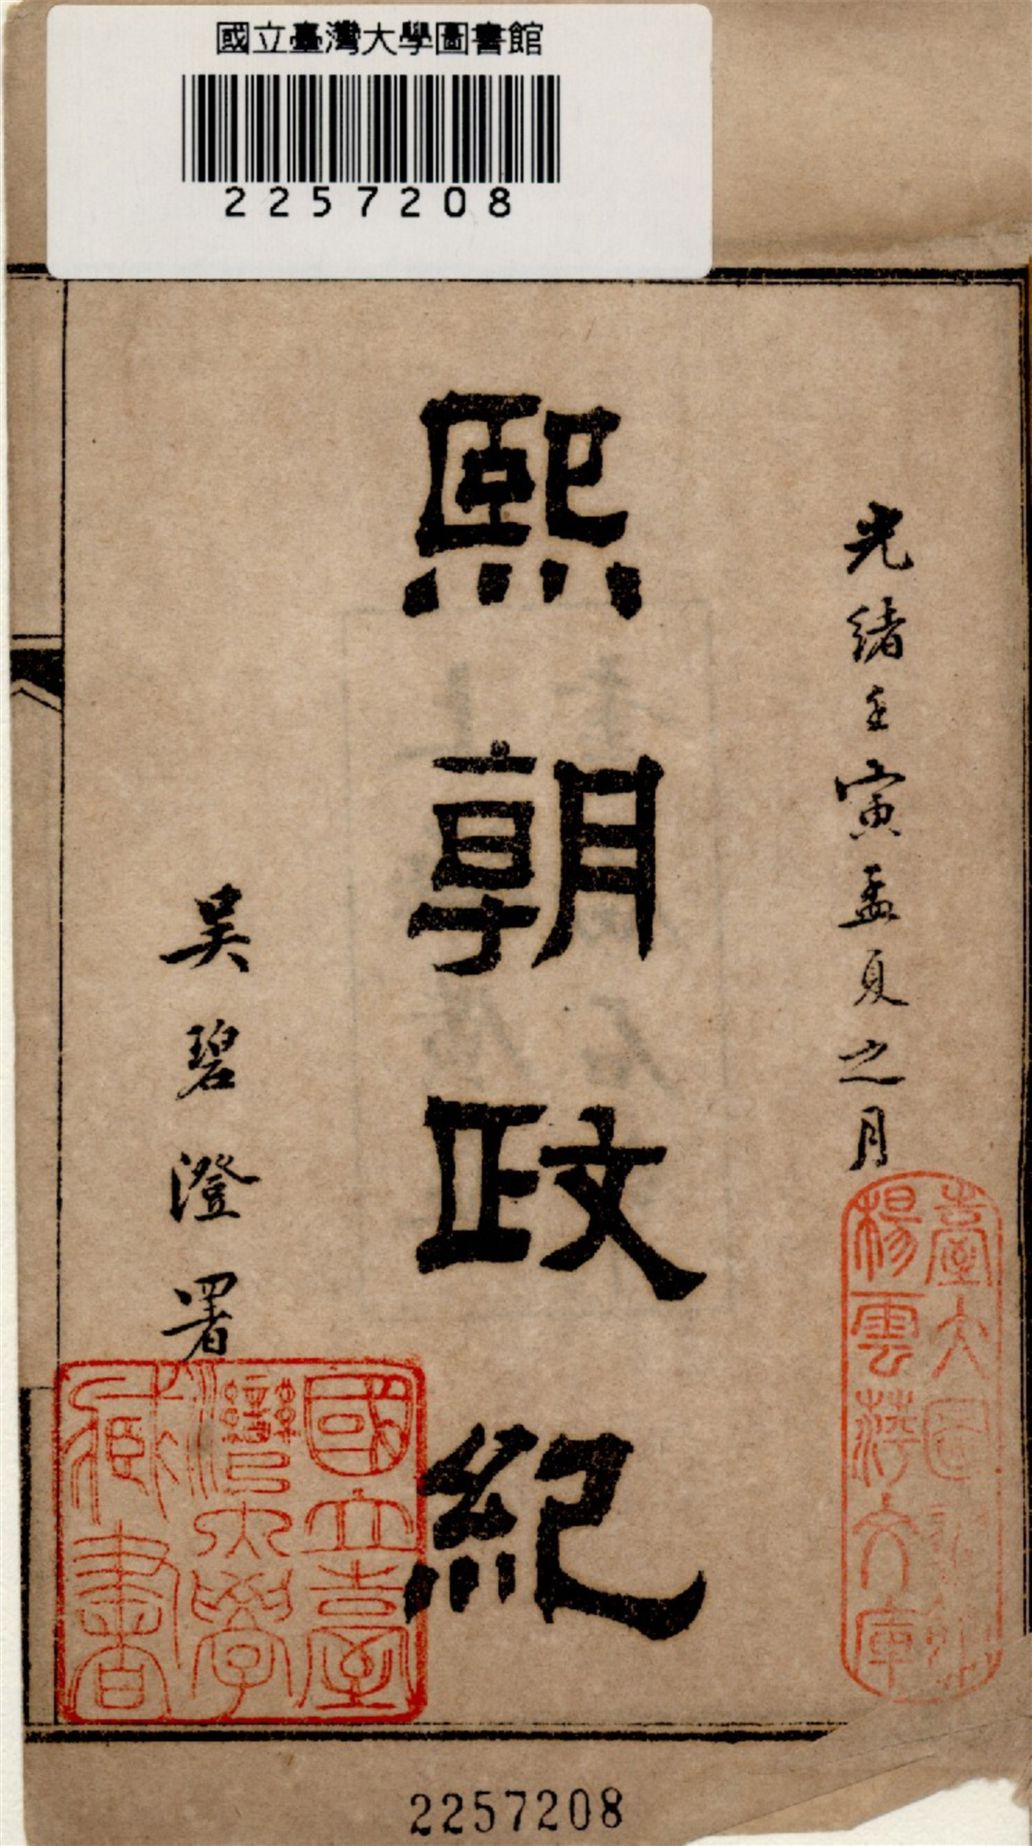 國立臺灣大學圖書館
2257208
光緒壬寅孟夏之月
熙朝政紀
吳碧澄署
臺大圖
楊雲萍文庫
國立臺
灣大學
藏書
2257208